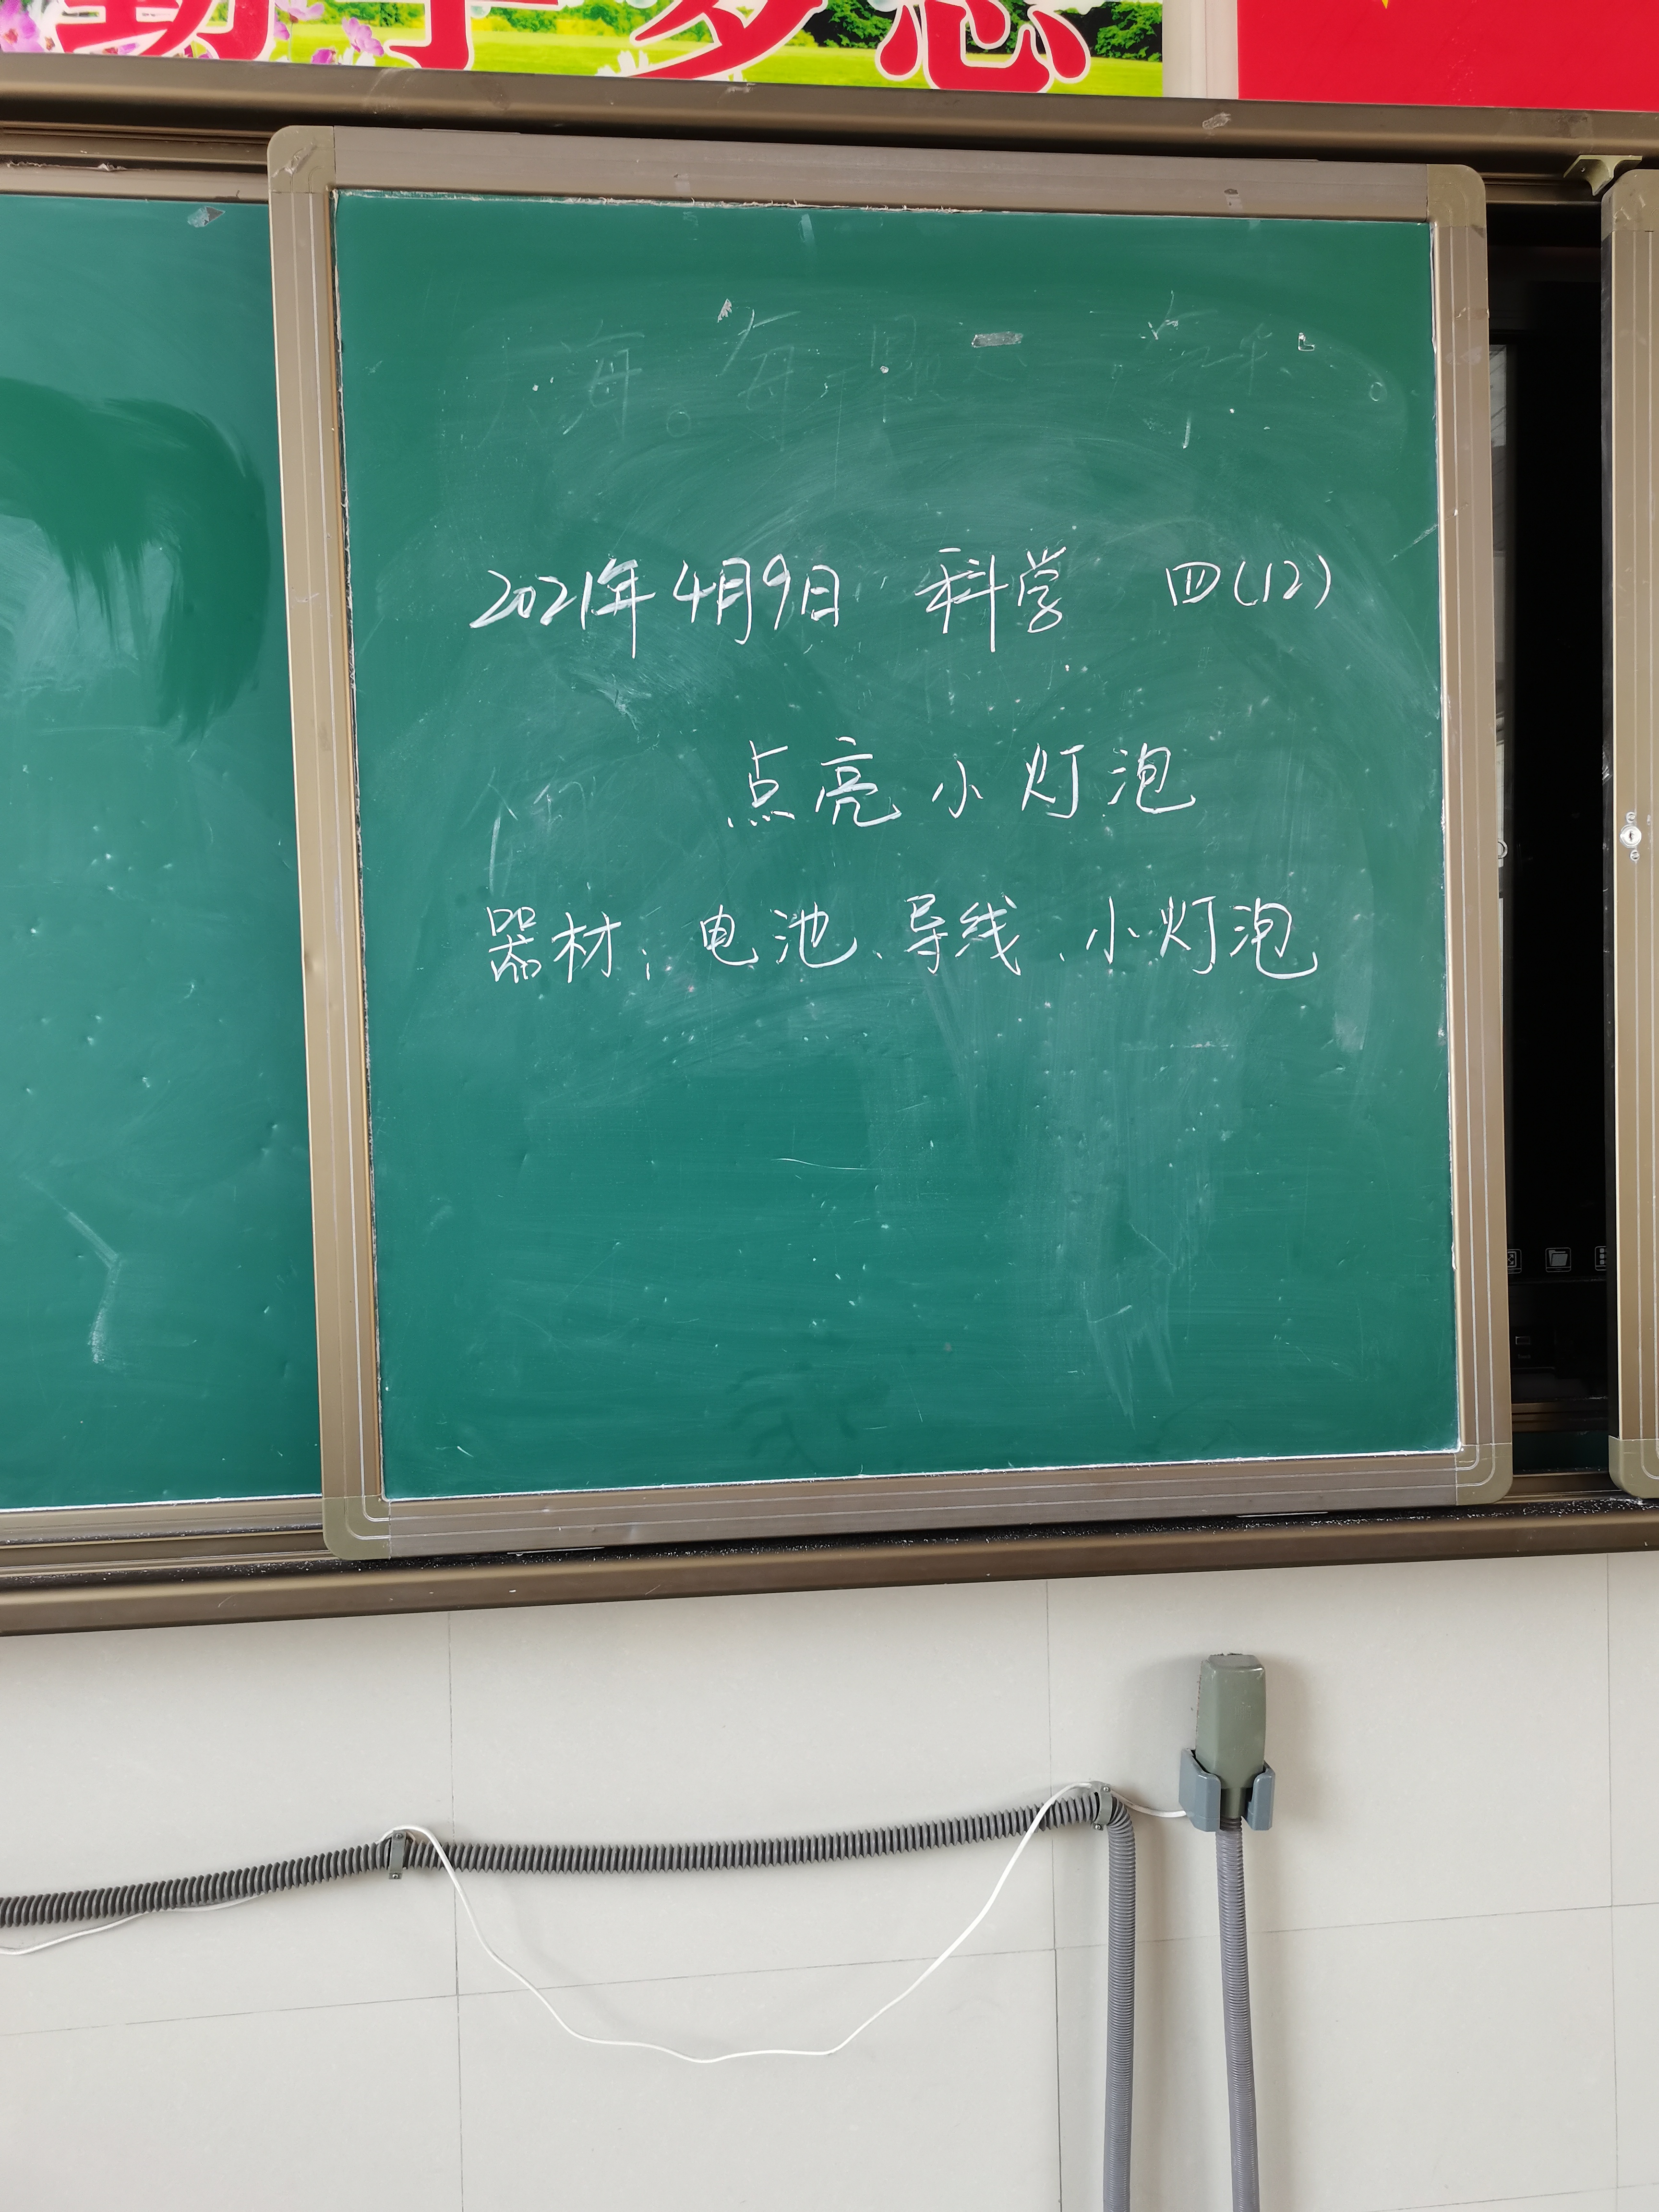 2021年4月9日 科学 四(12)
点亮小灯泡
器材：电池、导线、小灯泡